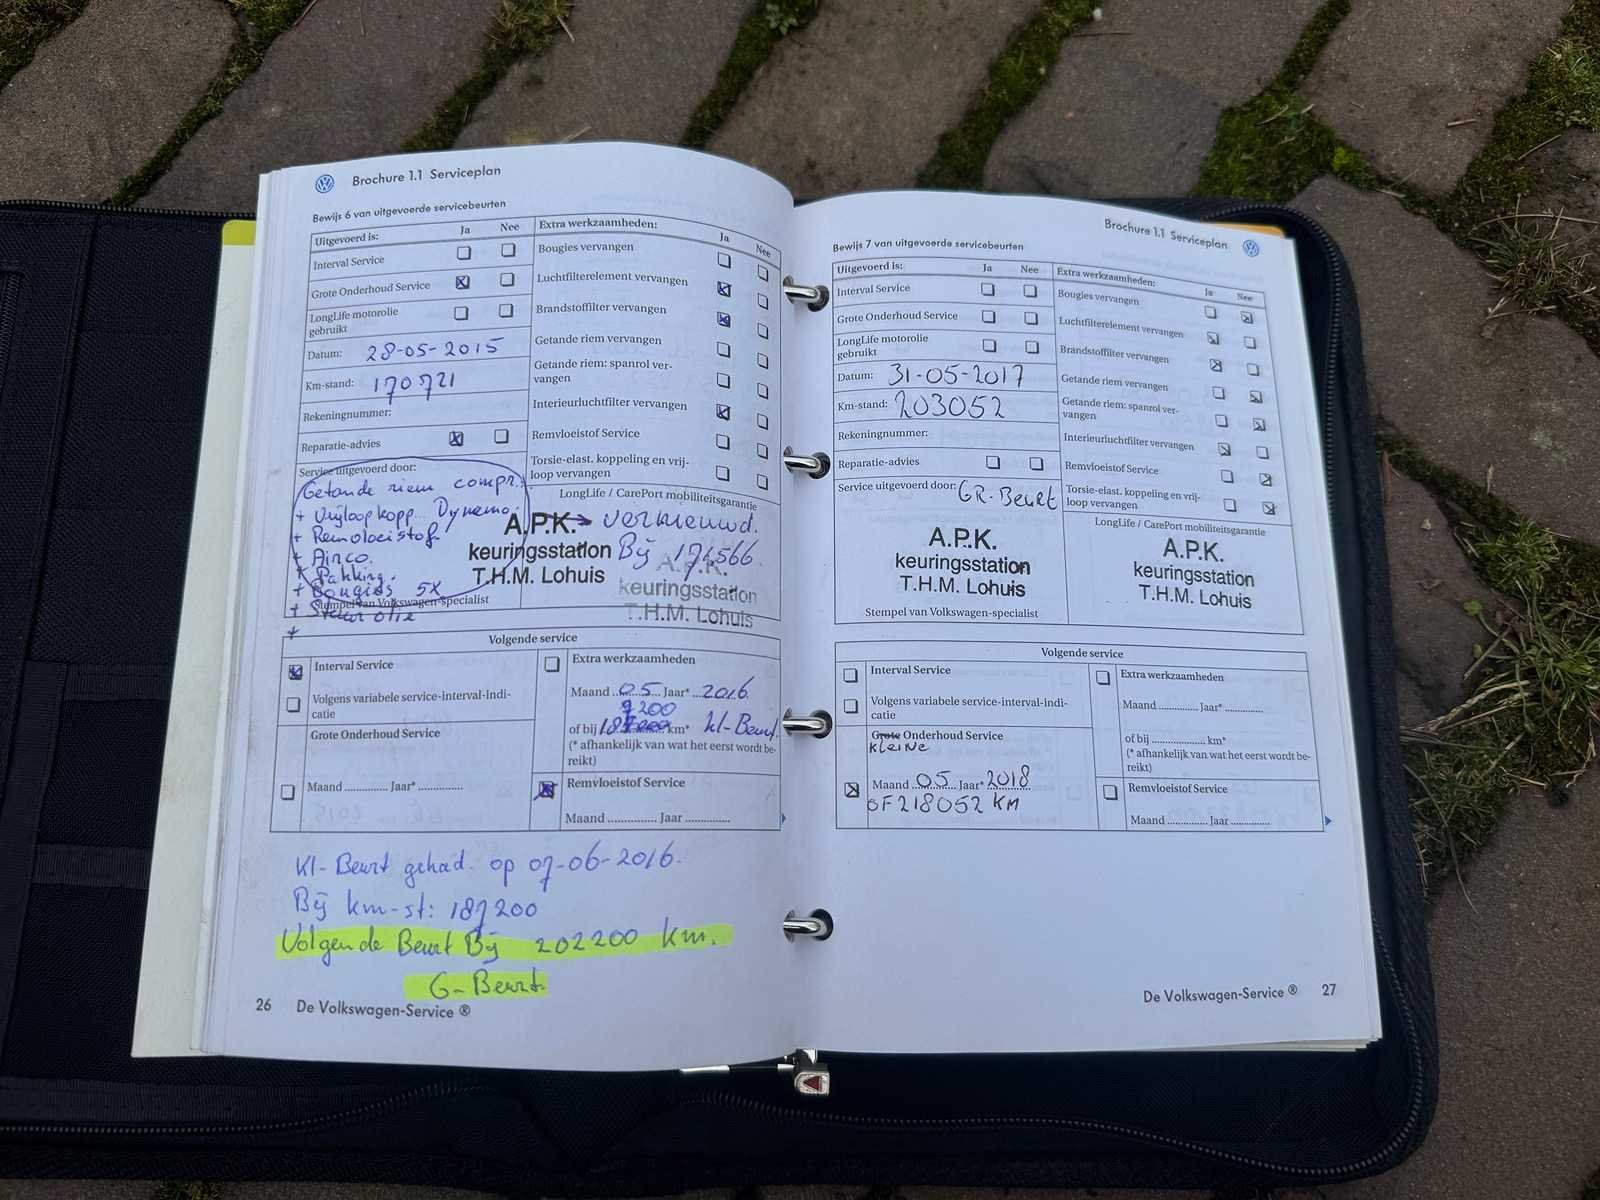 Brochure 1.1 Serviceplan
Bewijs 6 van uitgevoerde servicebeurten
Uitgevoerd is: Ja Nee
Interval Service
Grote Onderhoud Service
LongLife motorolie
gebruikt
Datum: 28-05-2015
Km-stand: 170721
Rekeningnummer:
Reparatie-advies
Service uitgevoerd door:
Getande riem compr.
+ Vrijloopkopp. Dynamo.
+ Remvloeistof.
+ Airco.
+ Pakking.
+ Bougies 5X
+ Stuurolie
+
Stempel van Volkswagen-specialist
A.P.K.
keuringsstation
T.H.M. Lohuis
Extra werkzaamheden: Ja Nee
Bougies vervangen
Luchtfilterelement vervangen
Brandstoffilter vervangen
Getande riem vervangen
Getande riem: spanrol ver-
vangen
Interieurluchtfilter vervangen
Remvloeistof Service
Torsie-elast. koppeling en vrij-
loop vervangen
LongLife / CarePort mobiliteitsgarantie
vernieuwd.
Bij 176566
A.P.K.
keuringsstation
T.H.M. Lohuis
Volgende service
Interval Service
Volgens variabele service-interval-indi-
catie
Grote Onderhoud Service
Maand .............. Jaar* ..............
Extra werkzaamheden
Maand 05 Jaar* 2016
7200
of bij km* kl-Beurt.
(* afhankelijk van wat het eerst wordt be-
reikt)
Remvloeistof Service
Maand ............... Jaar ..............
Kl-Beurt gehad. op 07-06-2016.
Bij km-st: 187200
Volgende Beurt Bij 202200 km.
G-Beurt.
26 De Volkswagen-Service ®
Brochure 1.1 Serviceplan
Bewijs 7 van uitgevoerde servicebeurten
Uitgevoerd is: Ja Nee
Interval Service
Grote Onderhoud Service
LongLife motorolie
gebruikt
Datum: 31-05-2017
Km-stand: 203052
Rekeningnummer:
Reparatie-advies
Service uitgevoerd door: GR-Beurt
A.P.K.
keuringsstation
T.H.M. Lohuis
Stempel van Volkswagen-specialist
Extra werkzaamheden: Ja Nee
Bougies vervangen
Luchtfilterelement vervangen
Brandstoffilter vervangen
Getande riem vervangen
Getande riem: spanrol ver-
vangen
Interieurluchtfilter vervangen
Remvloeistof Service
Torsie-elast. koppeling en vrij-
loop vervangen
LongLife / CarePort mobiliteitsgarantie
A.P.K.
keuringsstation
T.H.M. Lohuis
Volgende service
Interval Service
Volgens variabele service-interval-indi-
catie
Grote Onderhoud Service
Kleine
Maand 05 Jaar* 2018
OF 218052 KM
Extra werkzaamheden
Maand .............. Jaar* ..............
of bij .................... km*
(* afhankelijk van wat het eerst wordt be-
reikt)
Remvloeistof Service
Maand .............. Jaar ..............
De Volkswagen-Service ® 27